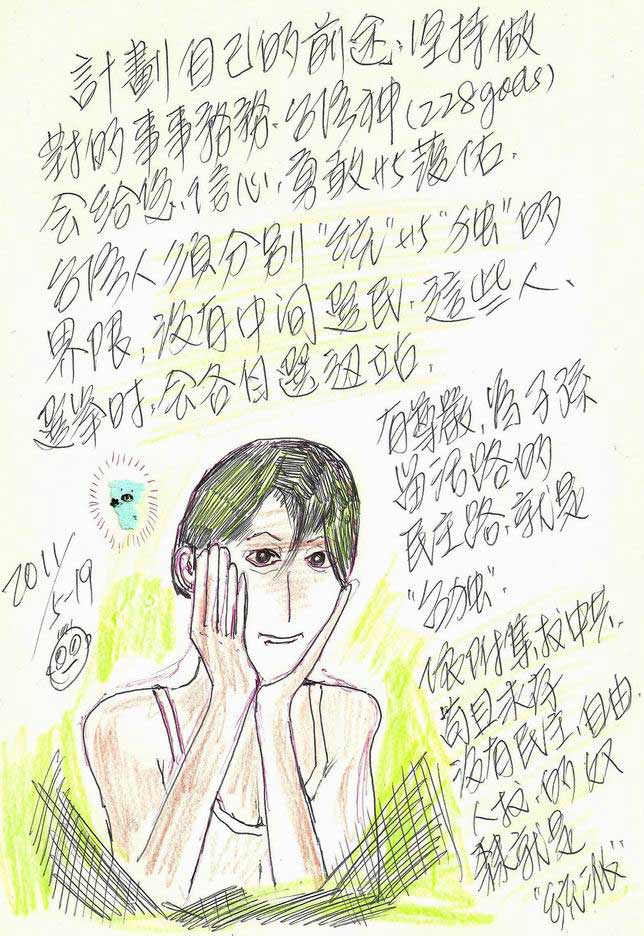 計劃自己的前途,坚持做
對的事事務務.台湾神(228gods)
会给您,信心,勇敢与護佑.
台湾人須分别"统"与"独"的
界限,没有中间選民.這些人、
選举时,会各自選边站.
有尊嚴,為子孫
留活路的
民主路,就是
"台独".
依附集权中共.
苟且求存
没有民主,自由.
人权,的奴
隸就是
"统派"
2011/5-19